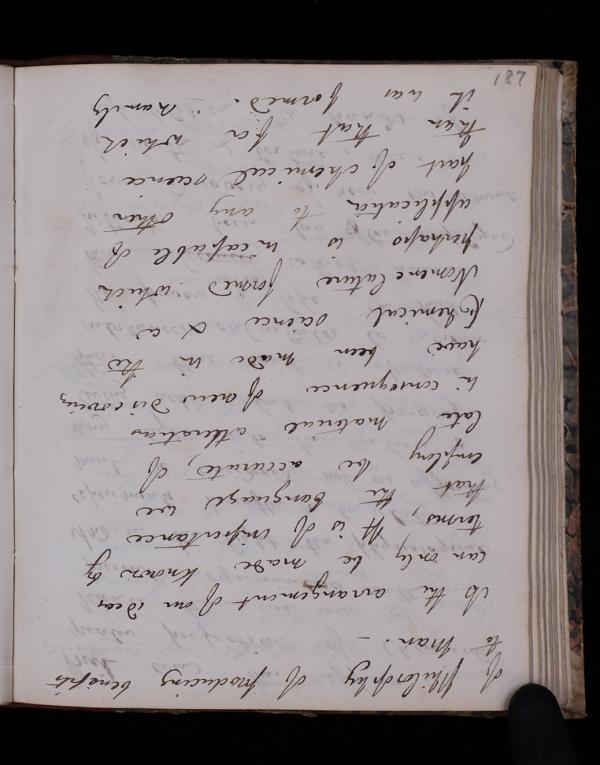 of Philosophy of producing benefit
to Man. —
As the arrangement of our ideas
can only be made known by
terms, It is of importance
that the language we
employ be accurate, Of
late material alterations
in consequence of new discoveries
have been made in the
Chemical science & a
Nomenclature formed which
perhaps is incapable of
application to any other
part of chemical science
than that for which
it was formed. namely
187